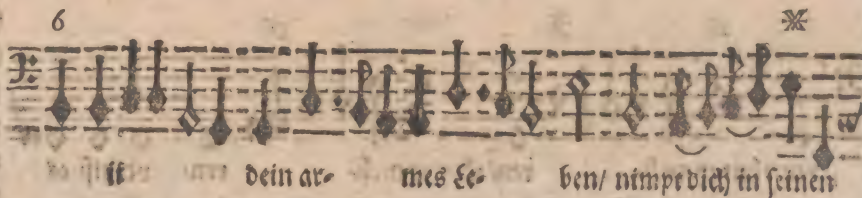 6
it dein ar- mes Le- ben/ nimpt dich in seinen